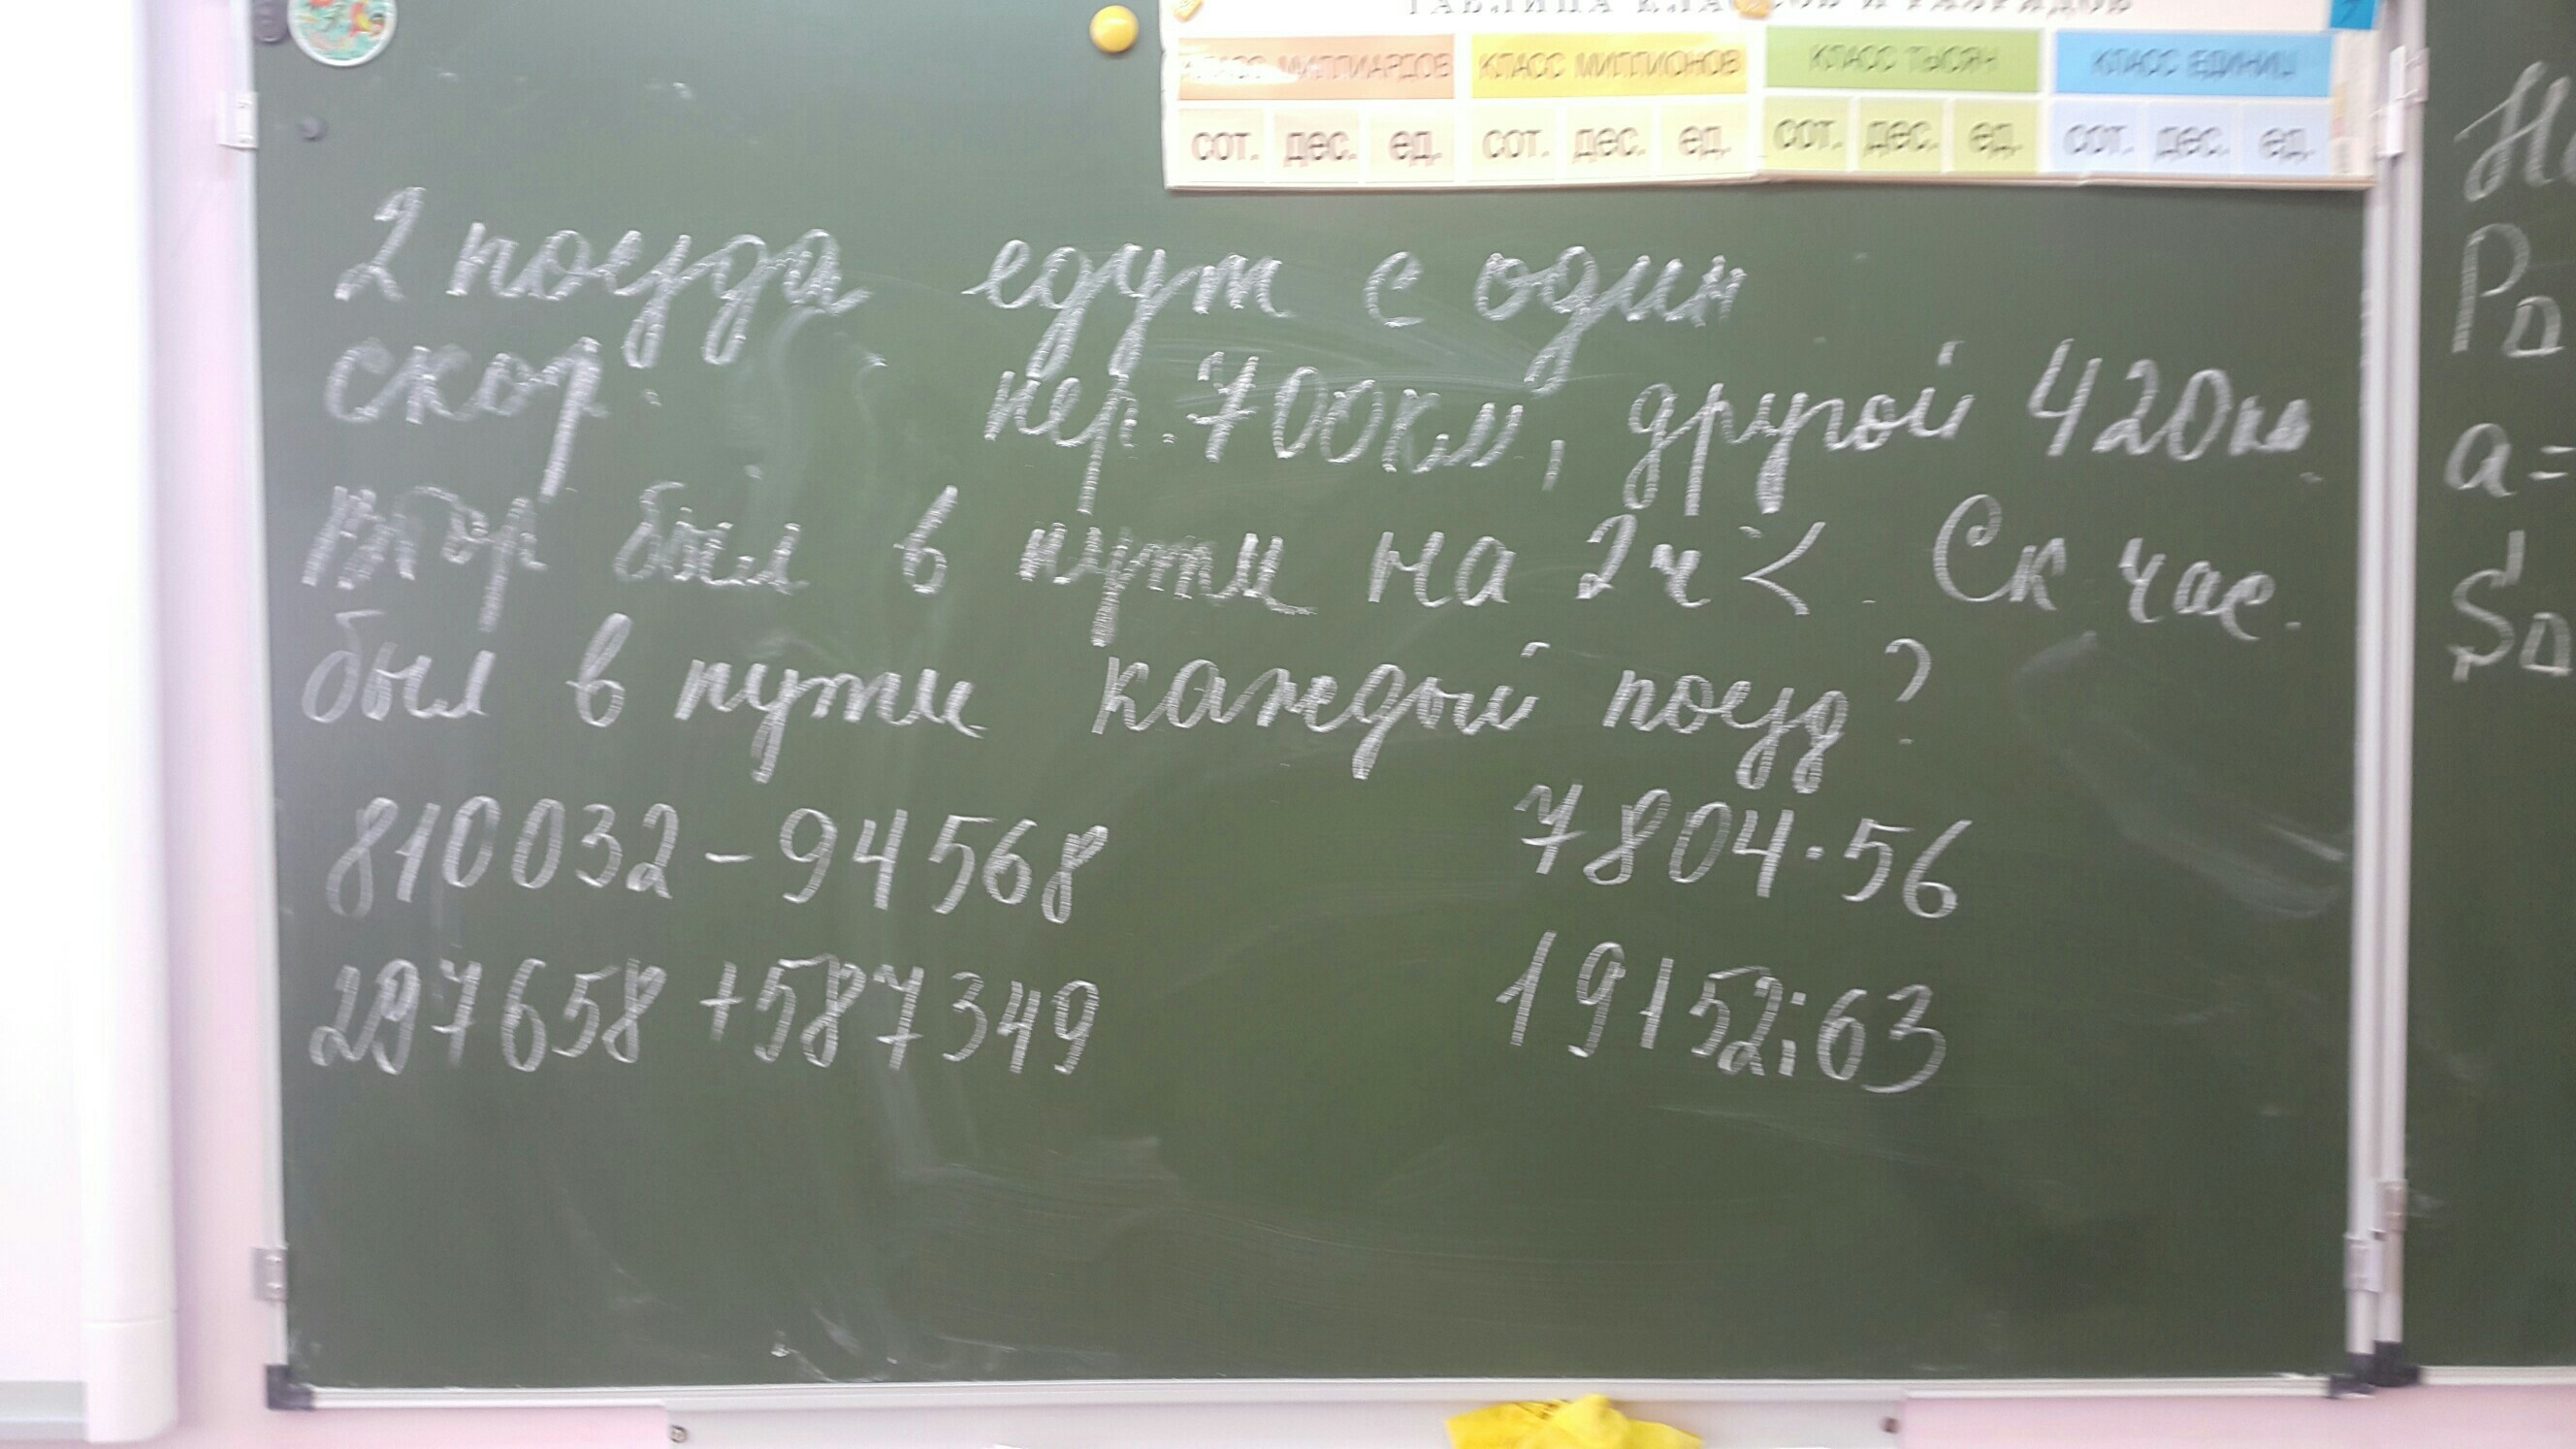 ТАБЛИЦА КЛАССОВ И РАЗРЯДОВ
КЛАСС МИЛЛИАРДОВ КЛАСС МИЛЛИОНОВ КЛАСС ТЫСЯЧ КЛАСС ЕДИНИЦ
сот. дес. ед. сот. дес. ед. сот. дес. ед. сот. дес. ед.
2 поезда едут с один
скор. пер. 700км, другой 420км.
втор был в пути на 2ч <. Ск час.
был в пути каждый поезд?
810032-94568 7804·56
297658+587349 19152:63
P△
a=
S△